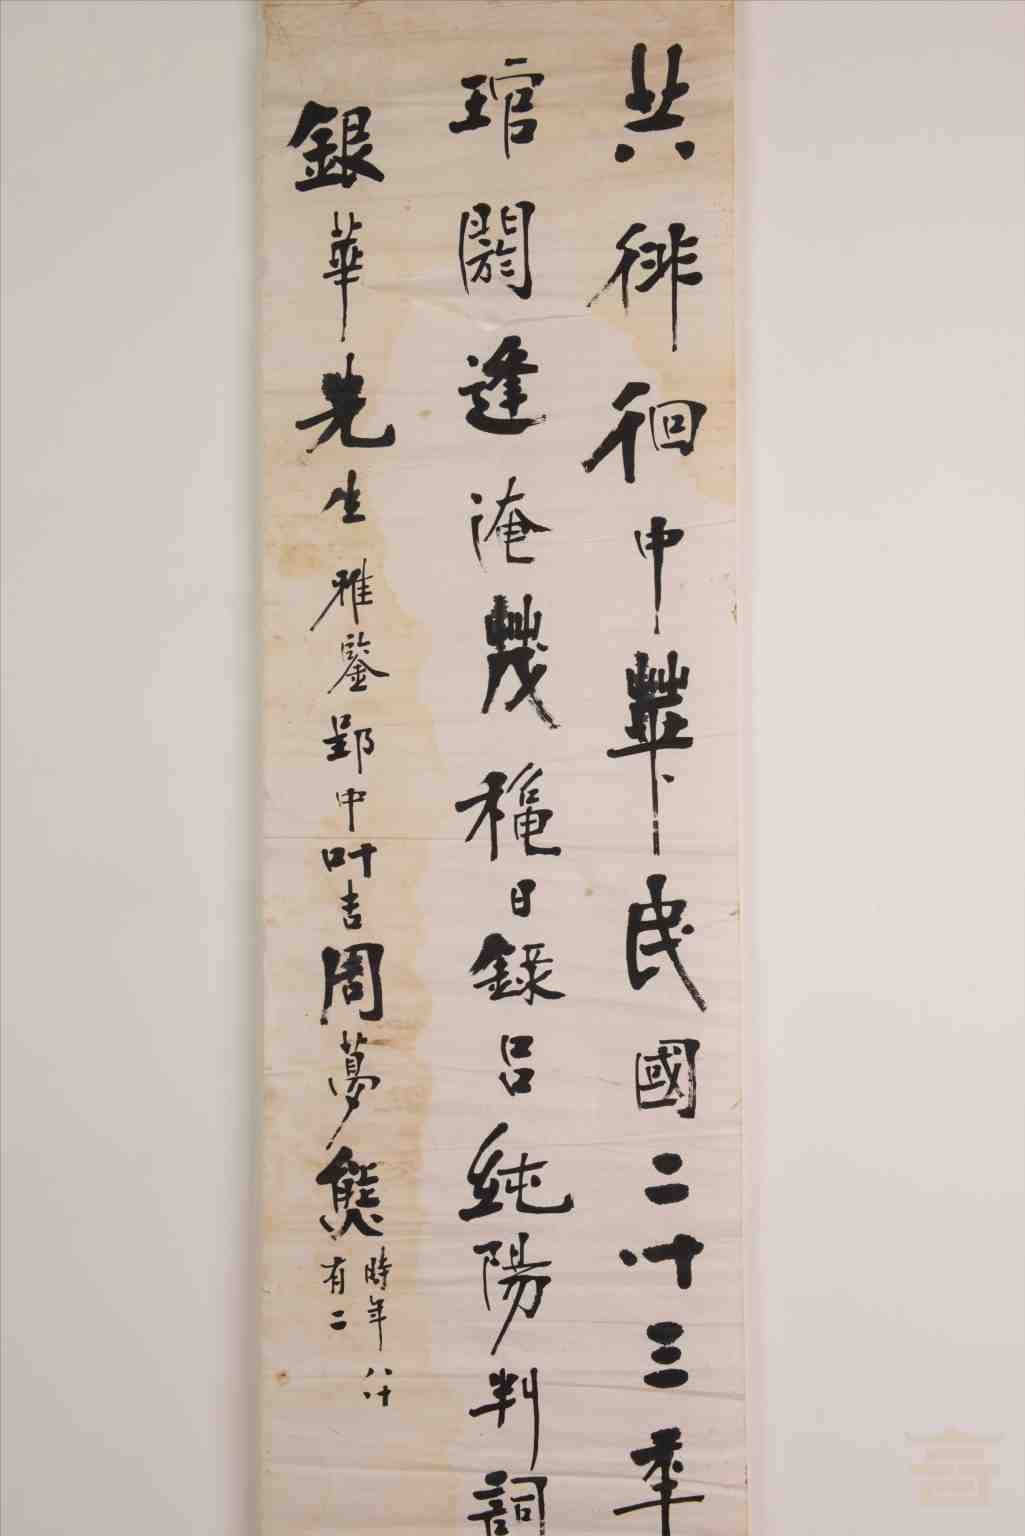 共徘徊中華民國二十三秊
琯閼逢淹茂穐日錄呂純陽判詞
銀華先生雅鑒郢中叶吉周夢熊
時年八十
有二